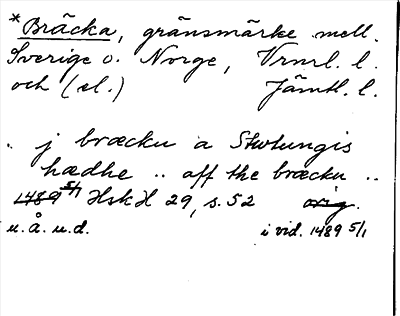 *Bräcka, gränsmärke mell.
Sverige o. Norge, Vrml. l.
och (el.) Jämtl. l.
.. j bræcku a Stutungis
hædhe .. aff the bræcku ..
1489 5/1 HskH 29, s. 52 orig.
u.å. u.d. i vid. 1489 5/1